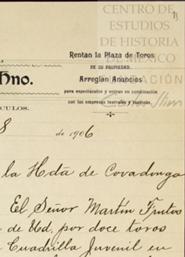 CENTRO DE
ESTUDIOS
DE HISTORIA
DE MÉXICO
Rentan la Plaza de Toros
DE SU PROPIEDAD.
Arreglan Anuncios
para espectáculos y
con las empresas teatrales y
Hno.
CULOS.
8 de 1906
la Hda de Covadonga
El Señor Martín Frutos
de Ud, por doce toros
Cuadrilla Juvenil en